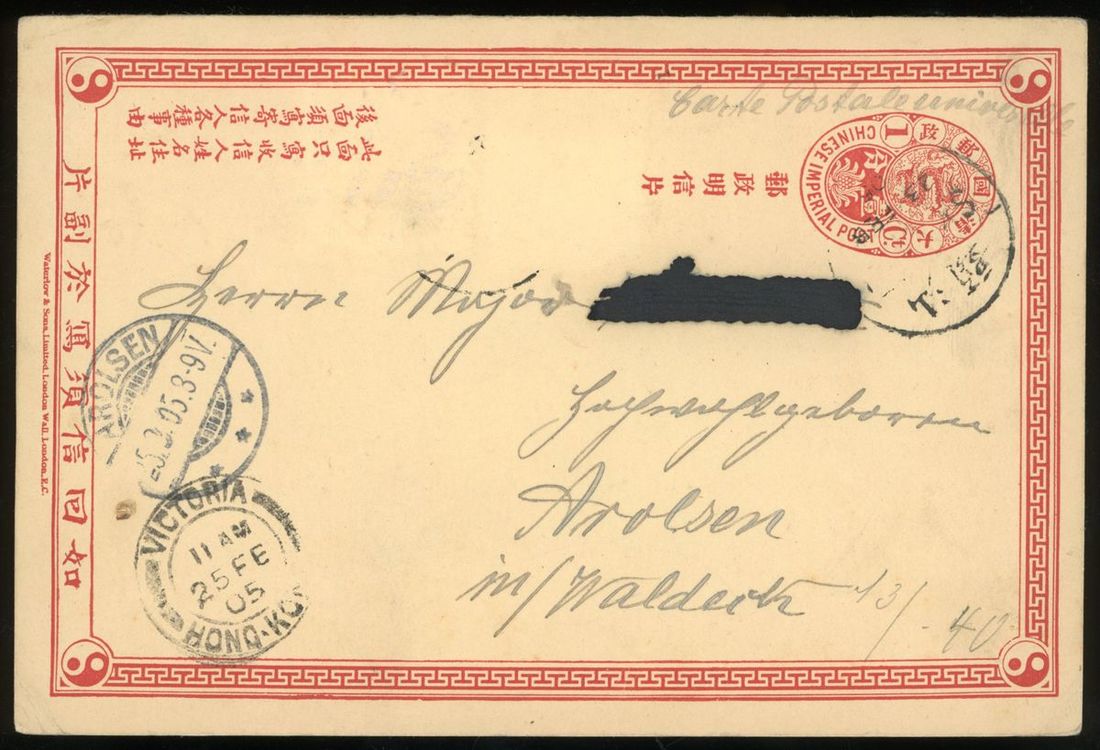 Carte Postale universelle
後面須寫寄信人各種事由
此面只寫收信人姓名住址
郵政明信片
大清國郵政
CHINESE IMPERIAL POST
1 Ct.
如回信須寫於副片
Waterlow & Sons Limited, London Wall, London, E.C.
Herrn Major
Hochwohlgeboren
Arolsen
in/Waldeck
13/
40
AROLSEN
25.3.05.3-9V.
VICTORIA
11 AM
25 FE
05
HONG·KO